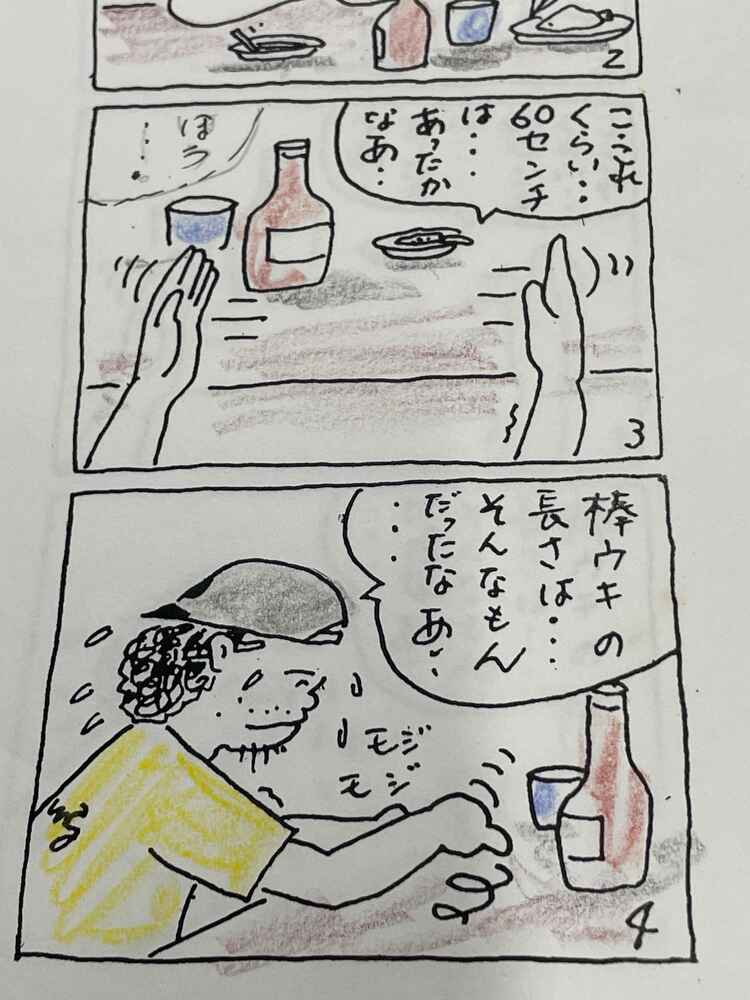 2
こうれ
くらい‥
60センチ
は・・・
あったか
なあ‥
ほう
・・・
3
棒ウキの
長さは・・・
そんなもん
だったなあ‥
・・・
モジ
モジ
4